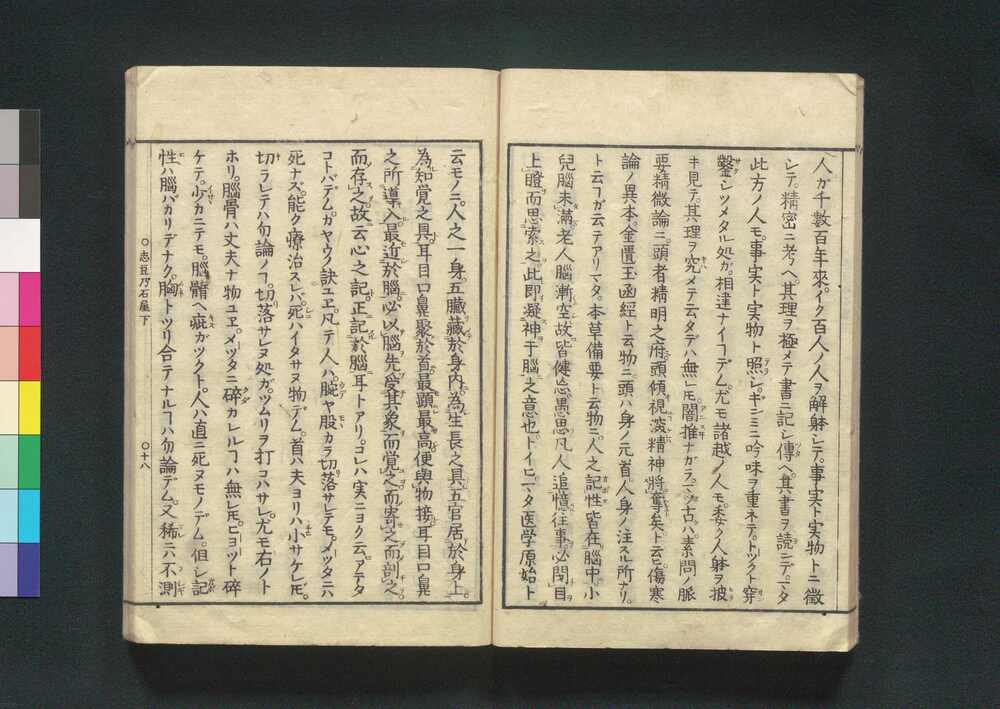 人ガ千數百年來。イク百人ノ人ヲ解躰シテ。事実ト実物トニ徴
シテ。精密ニ考ヘ其理ヲ極メテ書ニ記シ傳ヘ。其書ヲ読ンデ。マタ
此方ノ人モ。事実ト実物ト照シ。ギシミニ吟味ヲ重ネテ。トツクト穿
鑿シツメタル処ガ。相違ナイヿデム。尤モ諸越ノ人モ。委ク人躰ヲ披
キ見テ。其理ヲ究メテ云タデハ無レ𪜈。闇推ナガラ。マヅ古ハ素問ノ脈
要精微論ニ。頭者精明之府。頭傾視深精神將奪矣ト云ヒ。傷寒
論ノ異本。金匱玉函經ト云物ニ。頭ハ身ノ元首。人身ノ注スル所ナリ。
ト云フガ云テアリ。マタ。本草備要ト云物ニ。人之記性皆在腦中。小
兒腦未滿。老人腦漸空。故皆健忘愚思。凡人追憶往事。必閉目
上瞪而思索之。此即凝神于腦之意也。トイヒ。マタ医学原始ト
云モノニ。人之一身。五臓藏於身内。為生長之具。五官居於身上。
為知覚之具。耳目口鼻聚於首。最顕最高。便與物接。耳目口鼻
之所導入。最近於腦。必以腦先受其象而覚之。而寄之。而剖之。
而存之。故云心之記。正記於腦耳トアリ。コレハ実ニヨク云。アテタ
コトバデム。ガヤウノ訣ユヱ。凡テ人ハ腕ヤ股カラ切落サレデモ。メツタニハ
死ナズ。能ク療治スレバ。死ハイタサヌ物デム。首ハ夫ヨリハ小サケレ𪜈。
切ラレテハ勿論ノヿ。切落サレヌ処ガ。ツムリヲ打コハサレ。尤モ右ノト
ホリ。腦骨ハ丈夫ナ物ユヱ。メツタニ碎カレルヿハ無レ𪜈。ヒヨツト碎
ケテ。少カニテモ。腦髄ヘ疵ガツクト。人ハ直ニ死ヌモノデム。但シ記
性ハ腦バカリデナク。胸トツリ合テナルヿハ勿論デム。又稀ニハ不測
○志豆乃石屋下
○十八